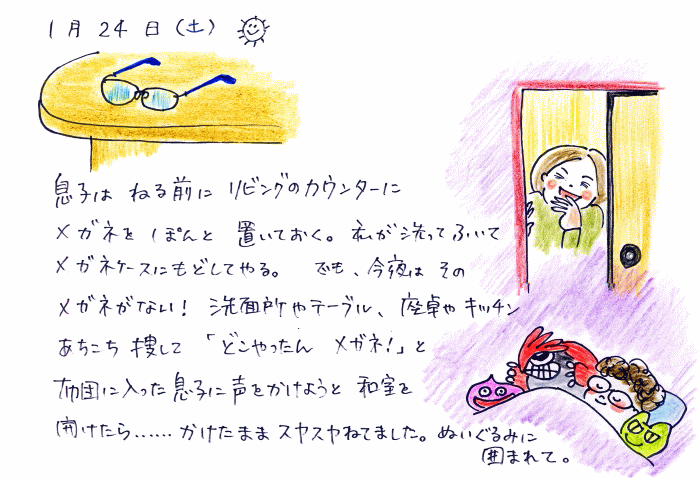 1月24日(土)
息子は ねる前に リビングのカウンターに
メガネを ぽんと 置いておく。 私が洗ってふいて
メガネケースにもどしてやる。 でも、今夜は その
メガネがない! 洗面所やテーブル、座卓や キッチン
あちこち 捜して 「どこやったん メガネ!」と
布団に入った息子に声をかけようと 和室を
開けたら…… かけたまま スヤスヤねてました。 ぬいぐるみに
囲まれて。